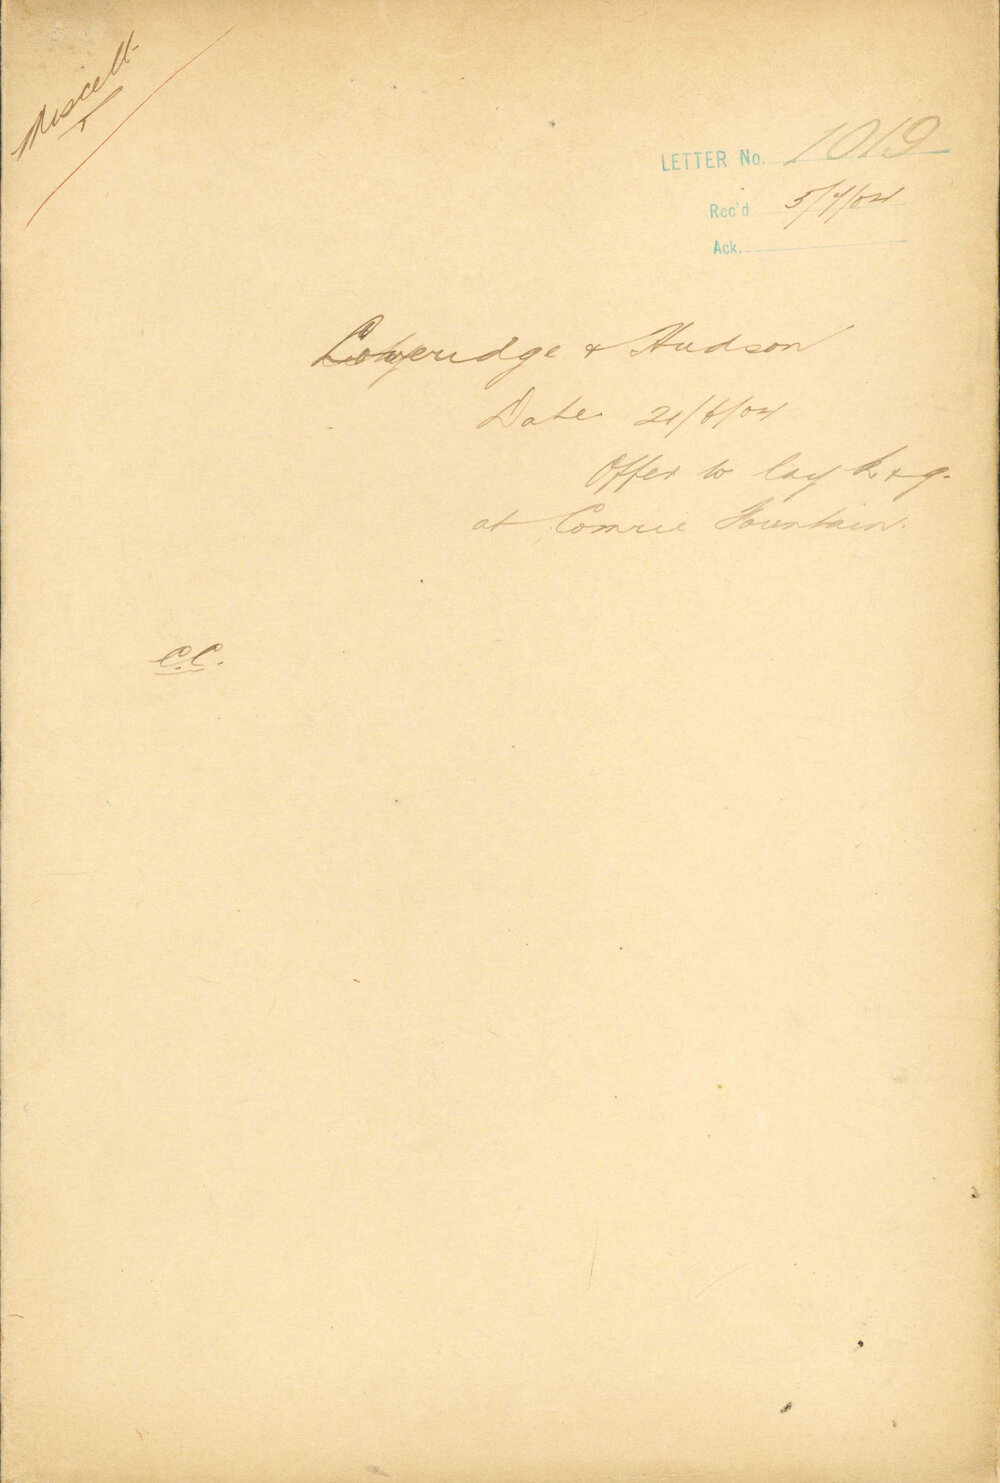 Miscell
LETTER No. 1019
Rec'd 5/7/04
Ack.
& Hudson
Date 21/6/04
Offer to lay k & g.
at Comrie Fountain.
C.C.